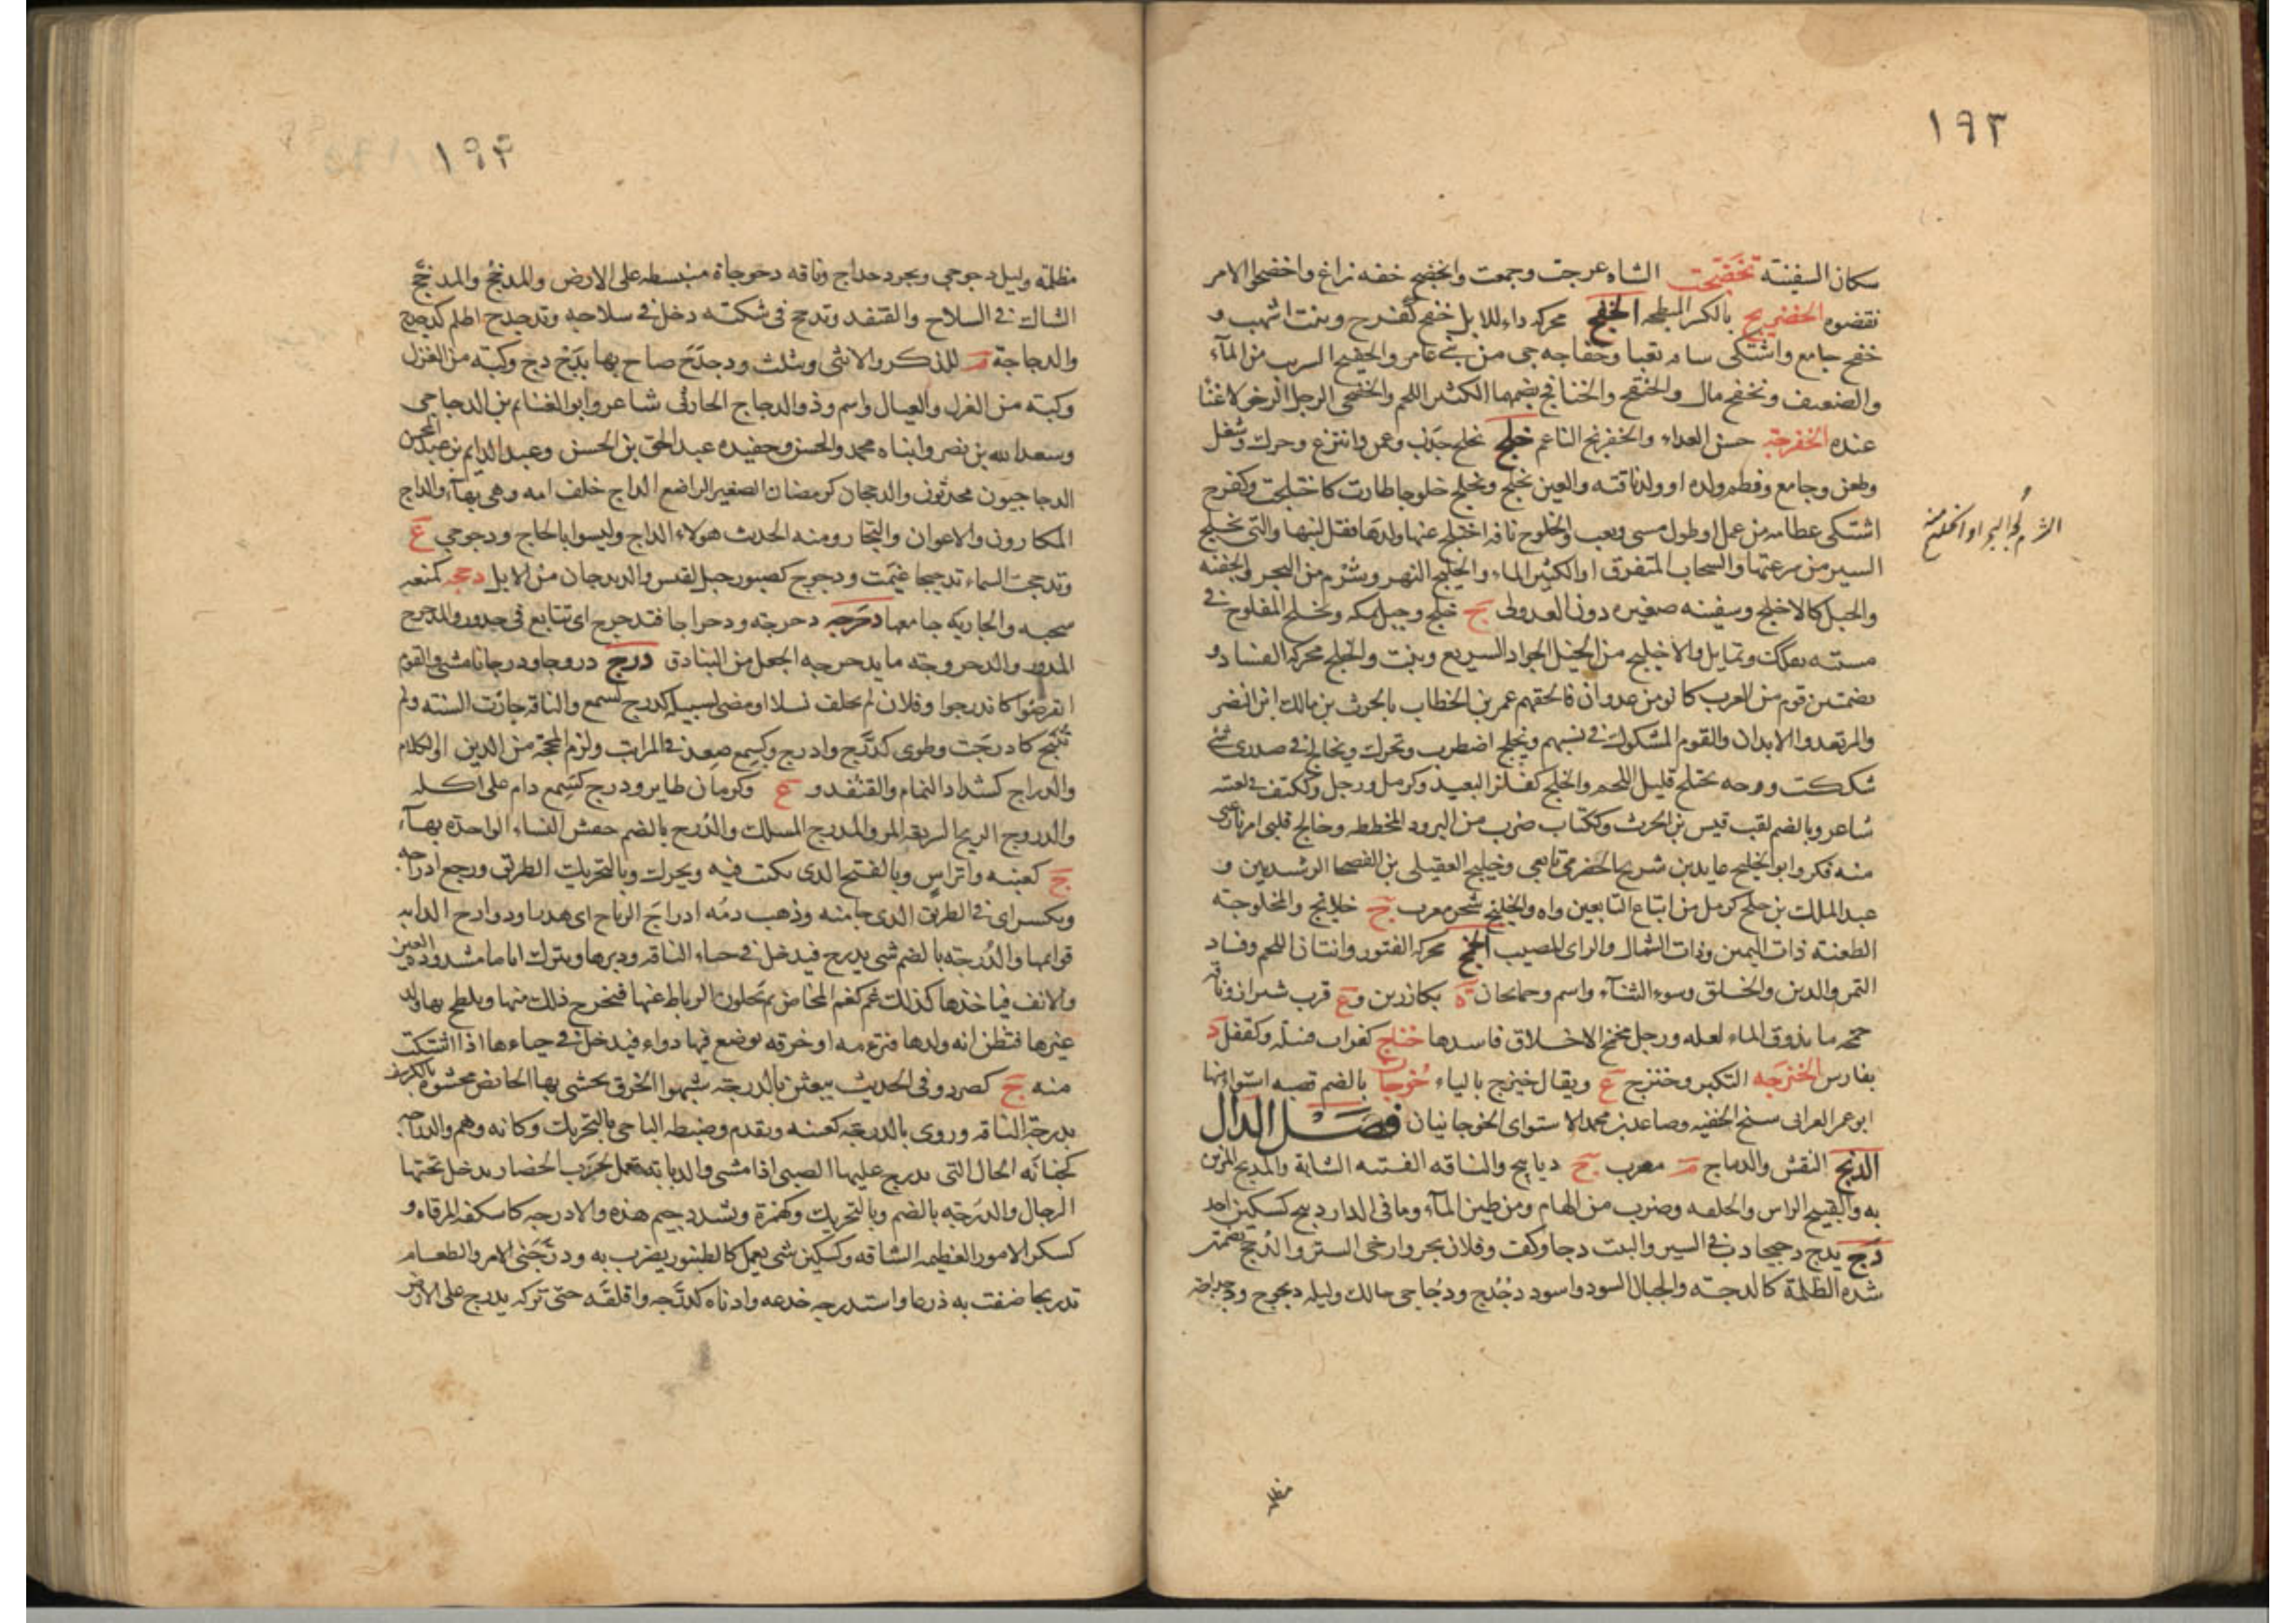 ١٩٣
سكان السفينة تخضجت الشاه عرجت وجمعت والخضج خفه نراغ واخضجوا الامر
نقضوه الخضريج بالكسر المبطحه الخفج محركه داء للابل خفج كفرح وبنت اشهب و
خفج جامع واشتكى ساقه تعبا وخفاجه حي من بني عامر والخفيج السرب من المآء
والضعيف وتخفج مال والخنفج والخنافج بضمهما الكثير اللحم والخفجى الرجل الرخو لا غنا
عنده الخفرجة حسن الغذاء والخفرنج الناعم خلج يخلج جذب وغمز وانتزع وحرك وشغل
وطعن وجامع وفطم ولده او ولد ناقته والعين تخلج وتخلج خلوجا طارت كاختلجت وكفرح
اشتكى عظامه من عمل او طول مشى وتعب والخلوج ناقه اختلج عنها ولدها فقل لبنها والتى تخلج
السير من سرعتها والسحاب المتفرق او الكثير الماء والخليج النهر وشرم من البحر والجفنه
والحبل كالاخلج وسفينه صغيره دون العدولى ج خلج وجبل بمكه وتخلج المفلوج فى
مشيته تفكك وتمايل والاخليج من الخيل الجواد السريع وبنت والخلج محركه الفساد و
بضمتين قوم من العرب كانو من عدوان فالحقهم عمر بن الخطاب بالحرث بن مالك ابن النضر
والمرتعدوا الابدان والقوم المشكوك فى نسبهم وتخلج اضطرب وتحرك وتخالج فى صدرى شئ
شككت ووجه مختلج قليل اللحم والخلج كفلز البعيد وكزمل ورجل وككتف فى لغته
شاعر وبالضم لقب قيس بن الحرث وككتاب ضرب من البرود المخططه وخالج قلبى امر نازعنى
منه فكر وابو الخليج عايد بن شريح الحضرمى تابعى وخليج العقيلى من الفصحا الرشديين و
عبد الملك بن خلج كزمل من اتباع التابعين واه والخلنج شجر معرب ج خلانج والمخلوجة
الطعنه ذات اليمين وذات الشمال والراى المصيب الخمج محركه الفتور وانتان اللحم وفساد
التمر والدين والخلق وسوء الثنآء واسم وخمايجان ة بكازرين وع قرب شيراز وناقه
خمجه ما تذوق الماء لعله ورجل مخمج الاخلاق فاسدها خناج كغراب قبيله وكقفل د
بفارس الخنزجه التكبر وخنزج ع ويقال خيزج بالياء خوجا بالضم قصبه استواء منها
ابو عمر الفراتى شيخ الحفيه وصاعد بن محمد الاستواى الخوجانيان فصل الدال
الدبج النقش والديباج م معرب ج ديابيج والناقه الفتيه الشابة والمدبج المزين
به والقبيح الراس والخلقه وضرب من الهام ومن طين المآء وما فى الدار دبيج كسكين احد
دج يدج دجيجا دب فى السير والبيت دجا وكفت وفلان تجر وارخى الستر والدجج بضمتين
شده الظلمة كالدجة والجبال السود واسود دجدج ودجاجى حالك وليله ديجوج ودجداجة
الشرم لجة البحر او الخليج منه
مظلمة
١٩۴
مظلمة وليل دجوجى وبحر دجداج وناقه دجوجاة منبسطه على الارض والمدجج والمدجج
الشاك فى السلاح والقنفد وتدجج فى شكته دخل فى سلاحه وتدجدج اظلم كدجدج
والدجاجة م للذكر والانثى ويثلث ودجدج صاح بها بدج دج وكبة من الغزل
وكبته من الغزل والعيال واسم وذو الدجاج الحارثى شاعر وابو الغنايم بن الدجاجى
وسعد الله بن نصر وابناه محمد والحسن وحفيده عبد الحق بن الحسن وعبد الدايم بن عبد المحسن
الدجاجيون محدثون والدججان كرمضان الصغير الراضع الداج خلف امه وهى بهآء والداج
المكارون والاعوان والتجار ومنه الحديث هولاء الداج وليسوا بالحاج ودجوجى ع
وتدججت السماء تدجيجا غيمت ودجوج كصبور جبل لقيس والديدجان من الابل دحجه كمنعه
سحبه والجاريه جامعها دحرجه دحرجته ودحراجا فتدحرج اى تتابع فى حدور والمدحرج
المدور والدحروجة ما يدحرجه الجعل من البنادق درج دروجا ودرجانا مشى والقوم
انقرضوا كاندرجوا وفلان لم يخلف نسلا او مضى لسبيله كدرج كسمع والناقه جازت السنه ولم
تنتج كادرجت وطوى كدرج وادرج وكسمع صعد فى المراتب ولزم المحجة من الدين او الكلام
والدراج كشداد النمام والقنفد و ع وكرمان طاير ودرج كسمع دام على اكله
والدروج الريح السريعه المر والمدرج المسلك والدرج بالضم حفش النساء الواحدة بهآء
ج كعنبه واتراس وبالفتح الذى يكتب فيه ويحرك وبالتحريك الطريق ورجع ادراجه
ويكسر اى فى الطريق الذى جا منه وذهب دمه ادراج الرياح اى هدرا ودوارج الدابه
قوايمها والدرجة بالضم شى يدرج فيدخل فى حياء الناقه ودبرها ويترك اياما مشدوده العين
والانف فياخذها كذلك غم كغم المخاض ثم تحلون الرباط عنها فيخرج ذلك منها ويلطخ بها ولد
غيرها فتظن انه ولدها فترءمه او خرقه يوضع فيها دواء فيدخل فى حياءها اذا اشتكت
منه ج كصرد وفى الحديث يبعثن بالدرجة شبهوا الخرق تحشى بها الحائض محشوه بالكرسف
بدرجة الناقه وروى بالدرجه كعنبه وتقدم وضبطه الباجى بالتحريك وكانه وهم والدراجه
كجبانه الحال التى يدرج عليها الصبى اذا مشى والدبابة تعمل لحرب الحصار يدخل تحتها
الرجال والدرجه بالضم وبالتحريك وكهمزة ويشدد جيم هذه والادرجه كاسكفه المرقاه و
كسكر الامور العظيمه الشاقه وكسكين شى يعمل كالطنبور يضرب به ودرجنى الامر والطعام
تدريجا ضقت به ذرعا واستدرجه خدعه وادناه كدرجه واقلقه حتى تركه يدرج على الارض